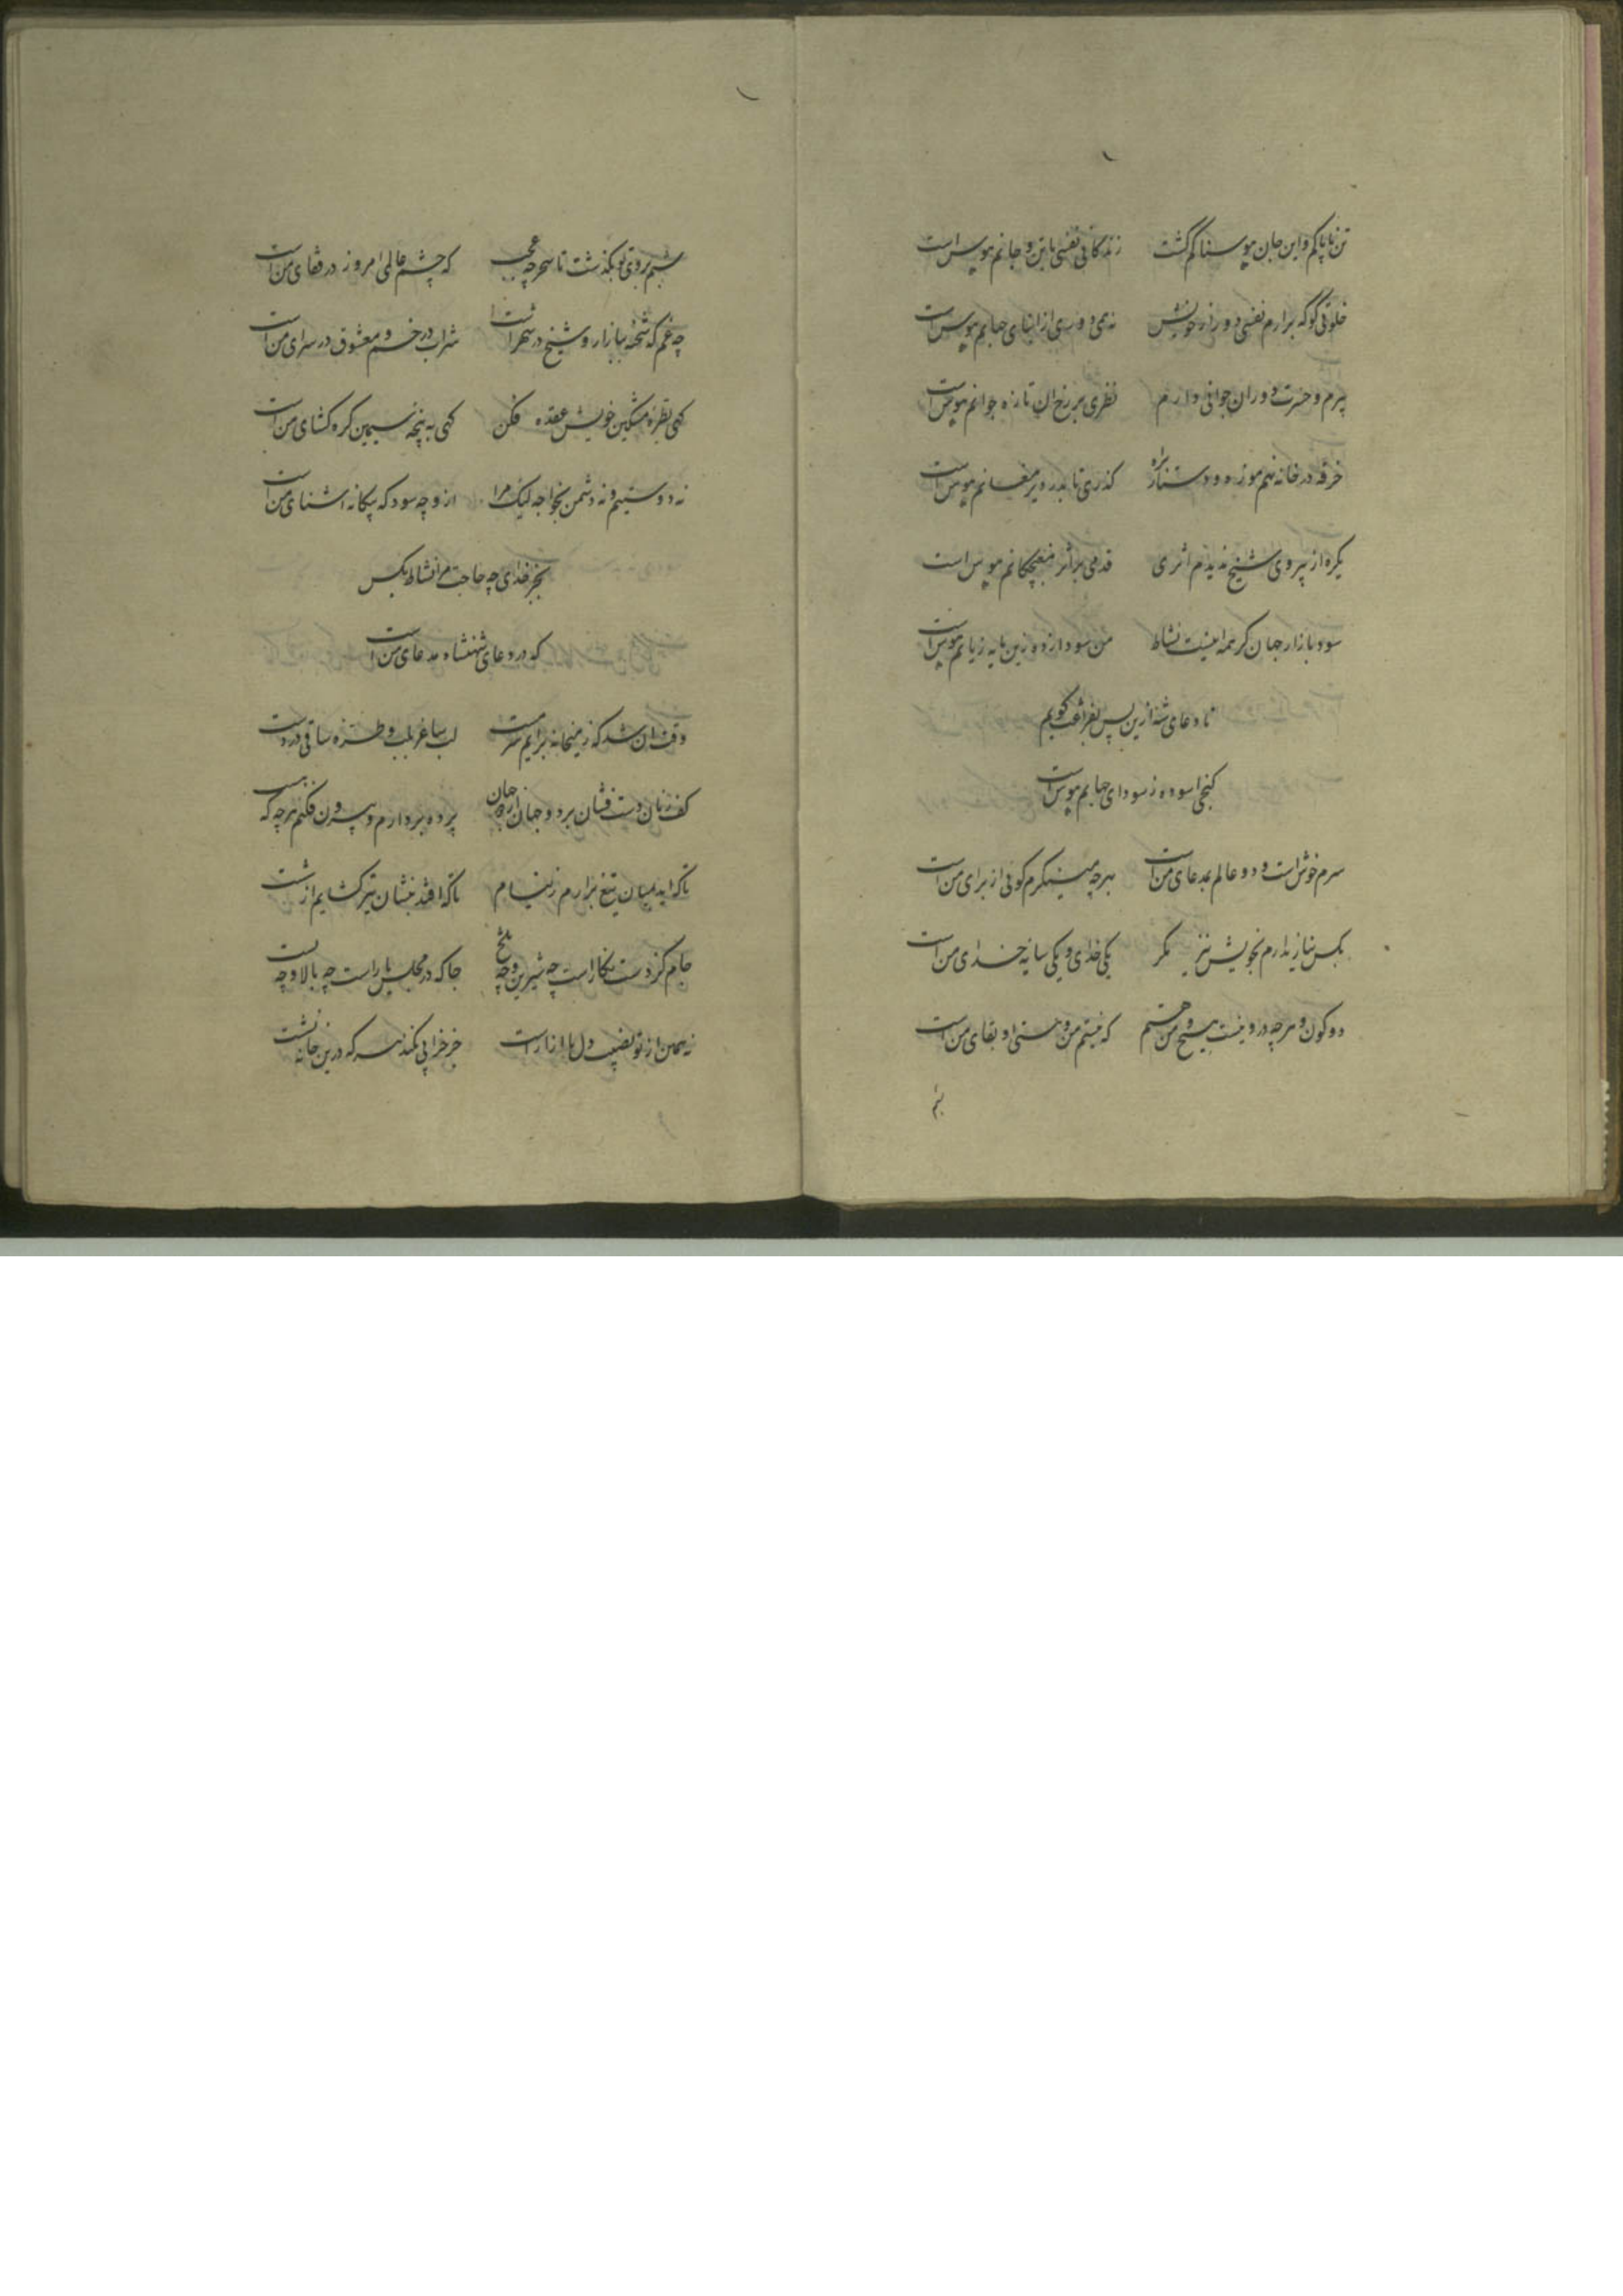 تن ناپاکم و این جان هوسناکم کشت زندکانی نفسی با تن و جانم هوس است
خلوتی کو که برارم نفسی دور از خویش نه همی دوری از ابنای جهانم هوس است
پیرم و حسرت دوران جوانی دارم نظری بر رخ ان تازه جوانم هوس است
خرقه در خانه نهم موزه و دستار براه کذری تا بدر دیر مغانم هوس است
یکره از پیروی شیخ ندیدم اثری قدمی بر اثر مغبچکانم هوس است
سود بازار جهان کر همه اینست نشاط من سودازده زین مایه زیانم هوس است
تا دعای شه ازین پس بفراغت کویم
کنجی اسوده ز سودای جهانم هوس است
سرم خوش است و دو عالم بمدعای من است بهر چه مینکرم کوئی از برای من است
بکس نیاز ندارم بخویش نیز مکر یکی خدای و یکی سایه خدای من است
دو کون و هر چه درو نیست هیچ و من هستم که نیستم من و هستی او بقای من است
شبم
شبم بروی تو بکذشت تا سحر چه عجب که چشم عالمی امروز در قفای من است
چه غم که شحنه ببازار و شیخ در شهر است شراب در خم و معشوق در سرای من است
کهی بطره مشکین خویش عقده فکن کهی به پنجه سیمین کره کشای من است
نه دوستیم و نه دشمن بخواجه لیک مرا ازو چه سود که بیکانه اشنای من است
بجز خدای چه حاجت مرا نشاط بکس
که در دعای شهنشاه مدعای من است
وقت ان شد که ز میخانه برایم سرمست لب ساغر بلب و طره ساقی در دست
کف زنان دست فشان بر دو جهان از دو جهان پرده بردارم و بیرون فکنم هر چه که هست
تا که اید بمیان تیغ برارم ز نیام تا که افتد بنشان تیر کشایم از شست
جام کز دست نکار است چه شیرین و چه تلخ جا که در مجلس یار است چه بالا و چه پست
نه همین از تو نصیب دل ما ازار است جز خرابی نکند هر که درین خانه نشست